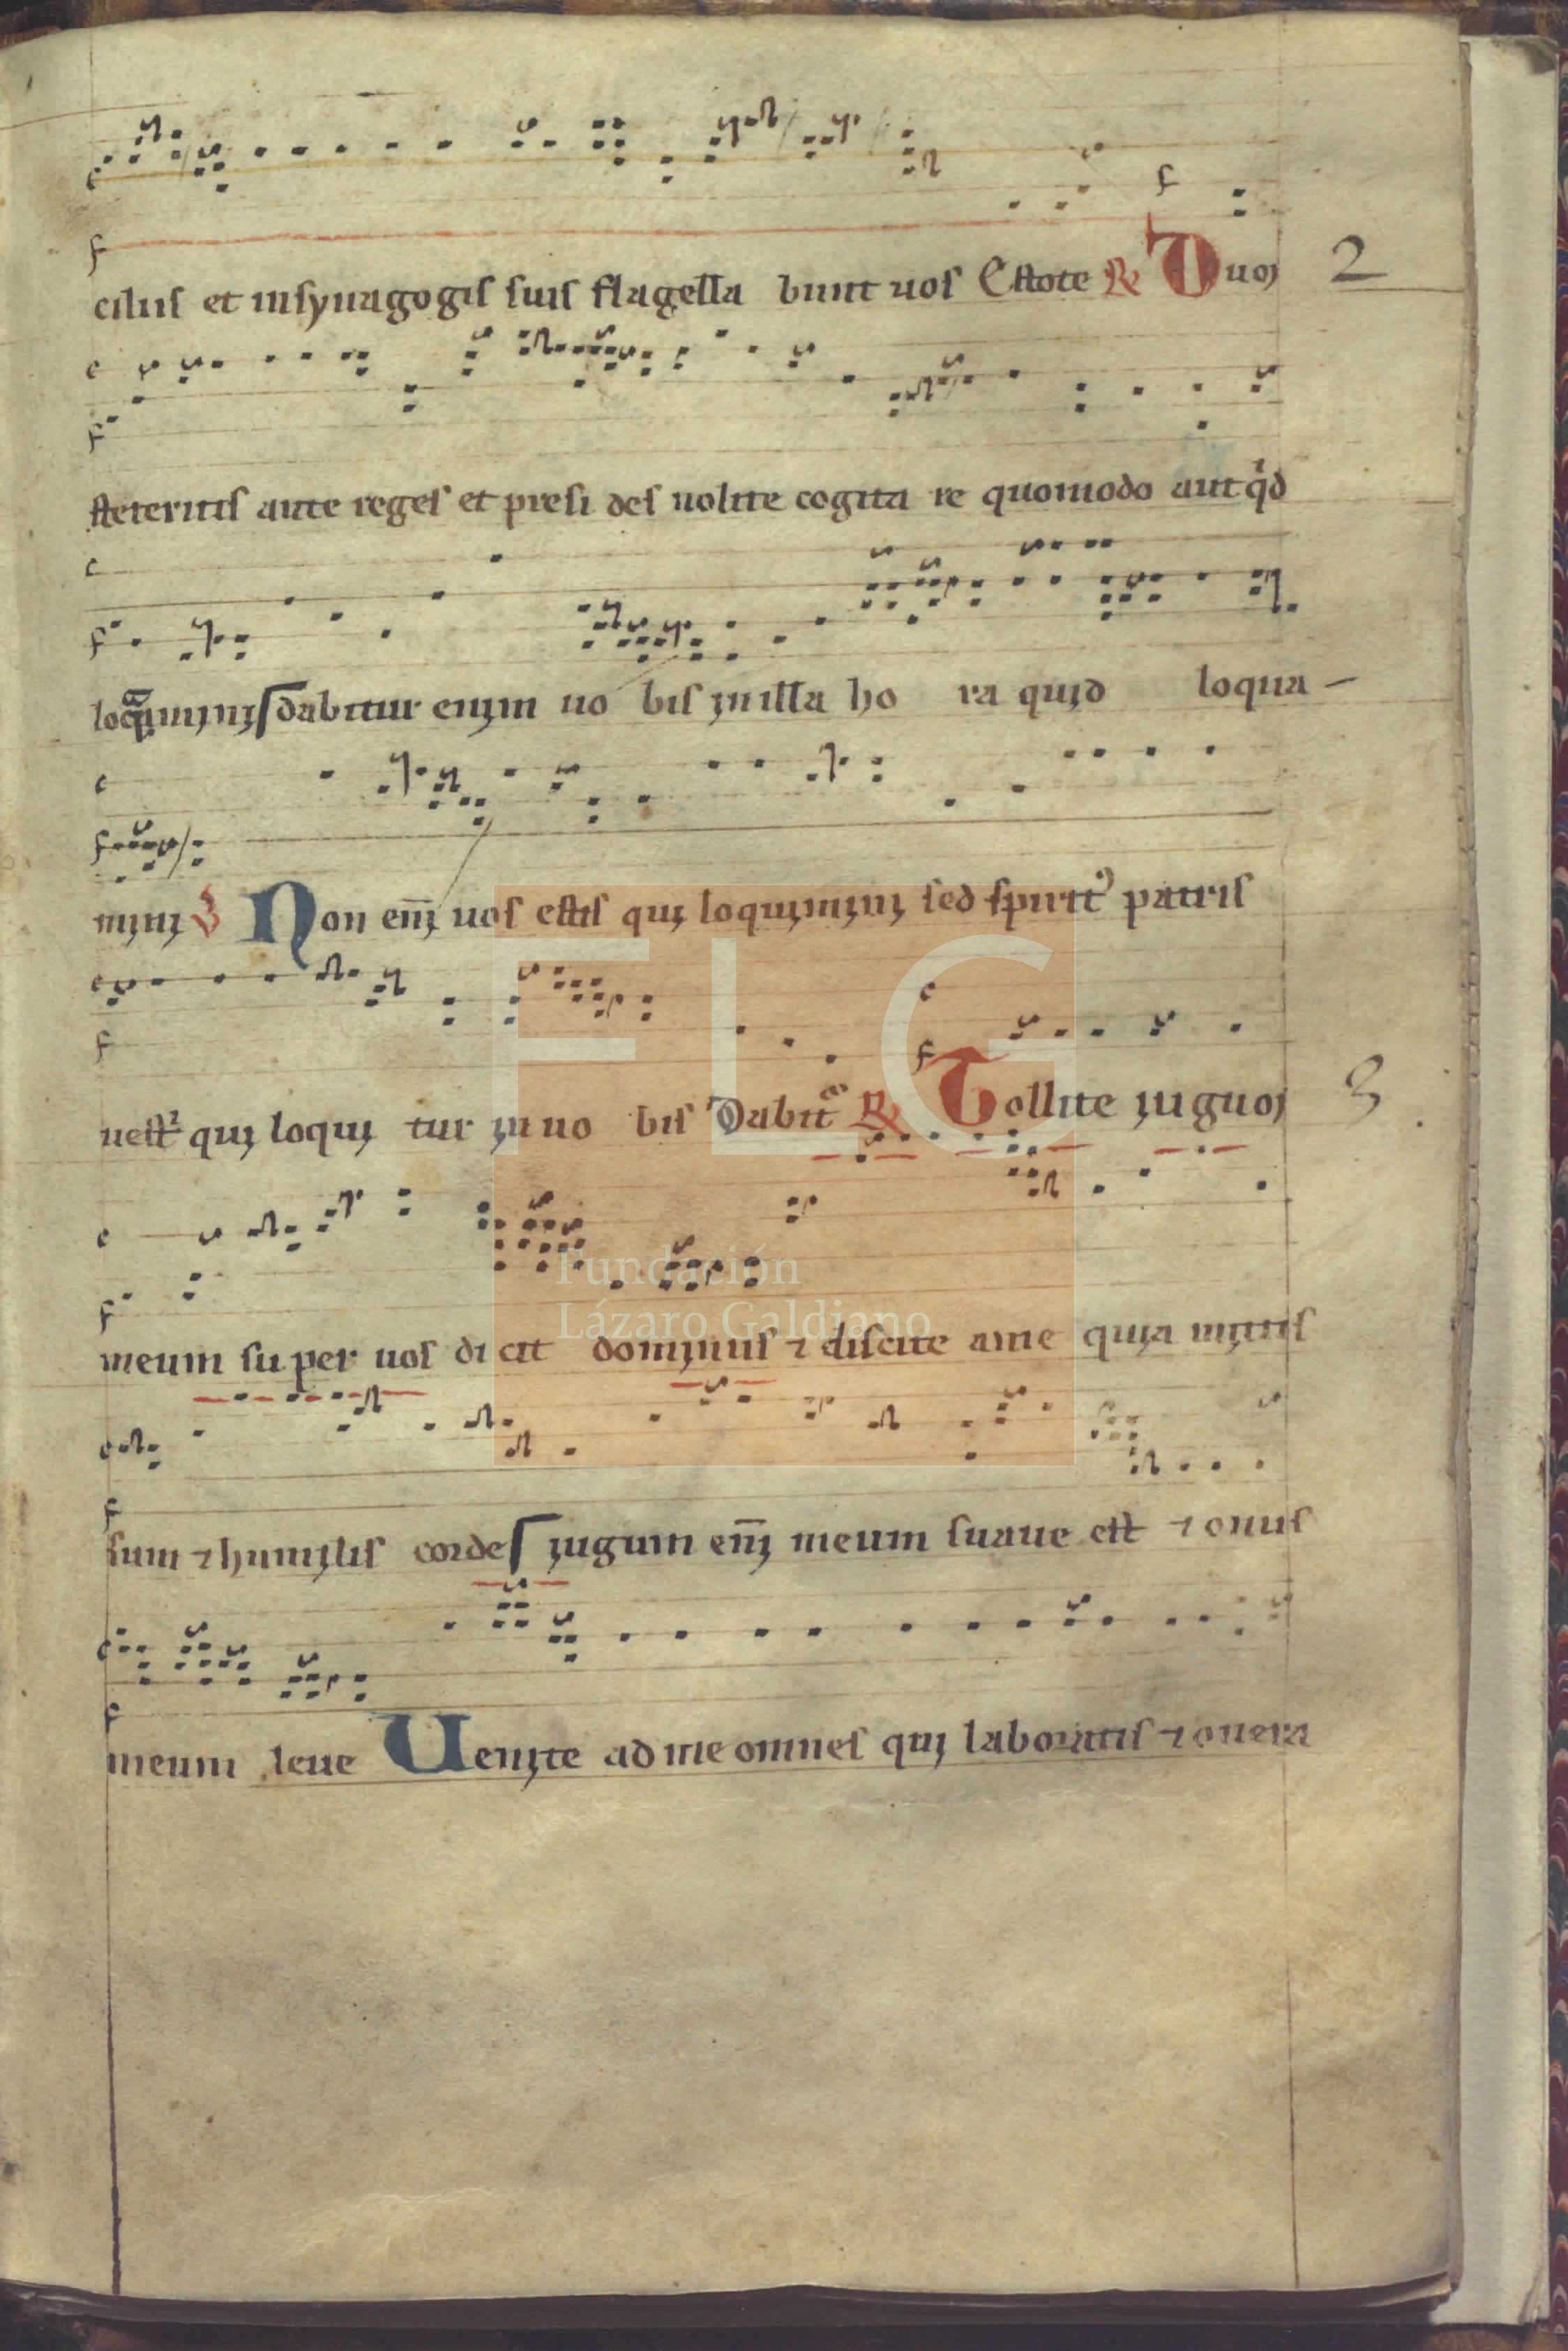 ciliis et insynagogis suis flagella bunt uos Estote R Dum 2
steteritis ante reges et presi des nolite cogita re quomodo aut qid
loqamini dabitur enim uo bis in illa ho ra quid loqua
mini V Non enī uos estis qui loquimini sed spirit⁹ patris
uestr qui loqui tur in uo bis Dabit R Tollite iugum 3
meum super uos dicit dominus ⁊ discite ame quia mitis
sum ⁊ humilis corde iugum enī meum suaue est ⁊ onus
meum leue Uenite ad me omnes qui laboratis ⁊ onera
FLG
Fundación
Lázaro Galdiano